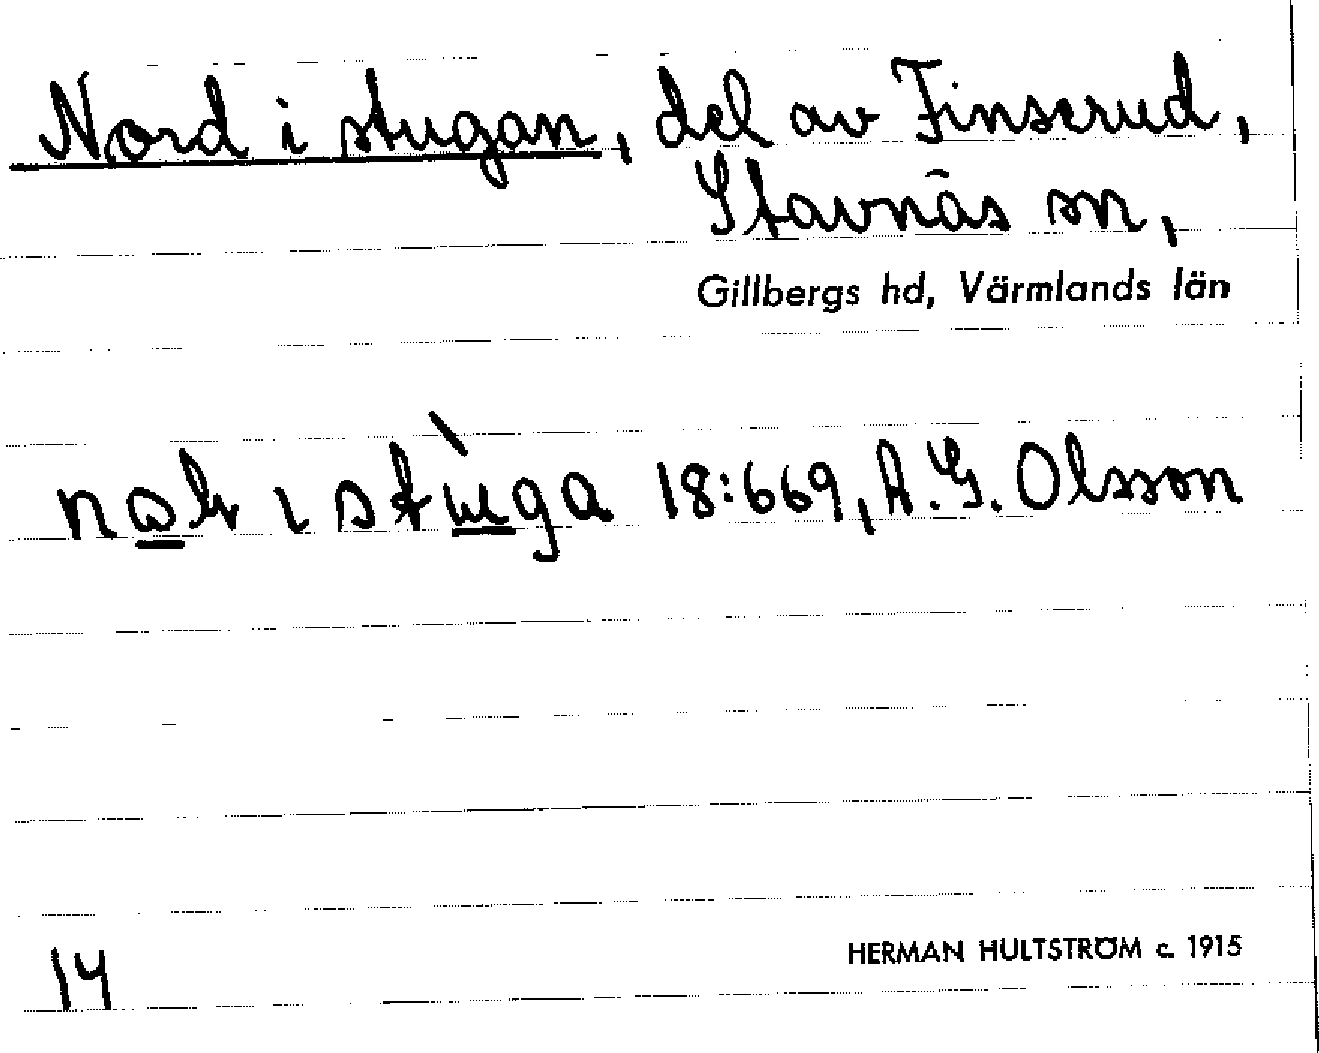 Nord i stugan, del av Finserud,
Stavnäs sn,
Gillbergs hd, Värmlands län
ı stùga 18:669, A.G. Olsson
14
HERMAN HULTSTRÖM c. 1915